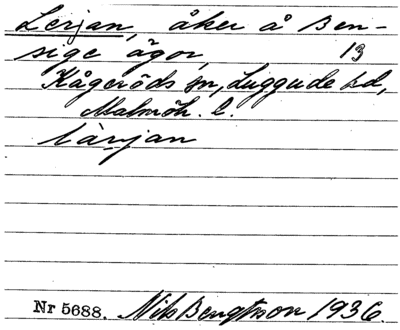 Lerjan, åker å Ben-
sige ägor, 13
Kågeröds sn, Luggude hd,
Malmöh. l.
lärjan
Nr 5688. Nils Bengtsson 1936.